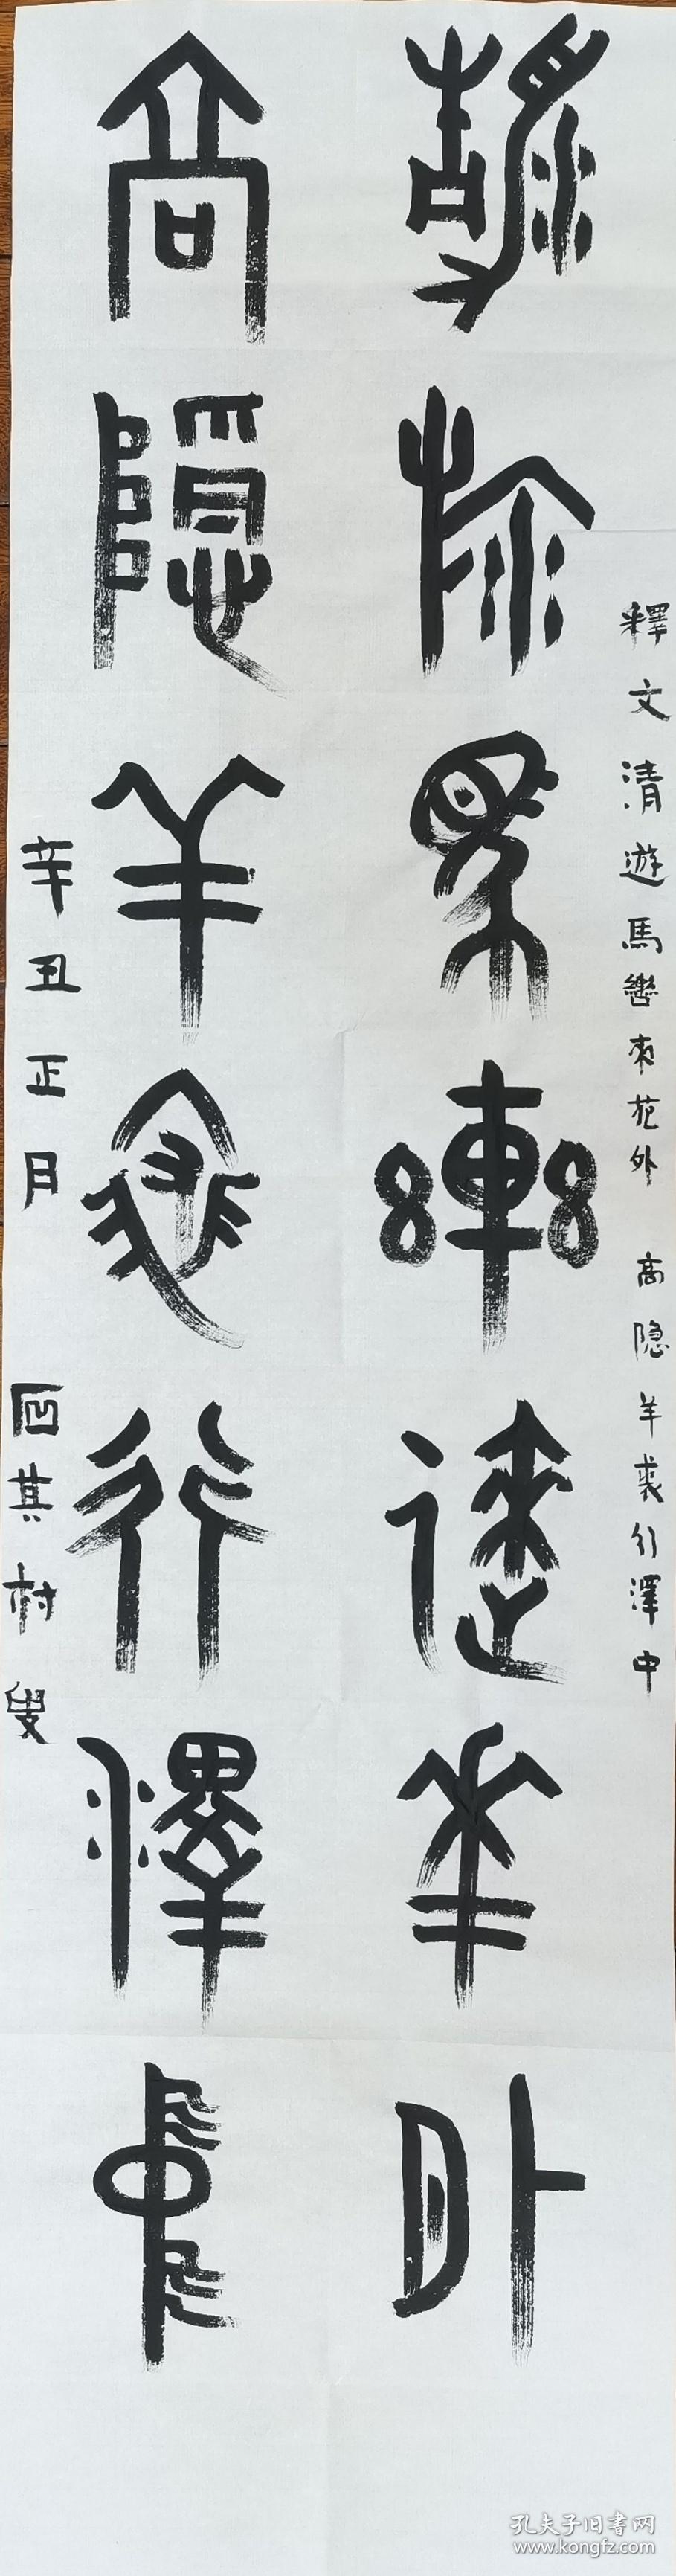 釋文清遊馬轡來花外 高隐羊裘行澤中
清遊馬轡來花外
高隱羊裘行澤中
辛丑正月
其村叟
孔夫子旧书网
www.kongfz.com